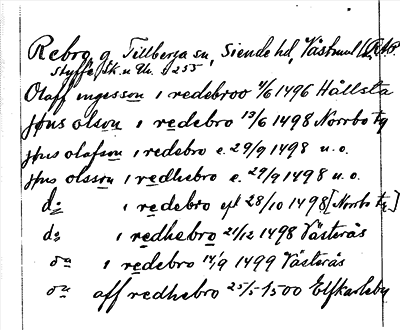 Rebro g. Tillberga sn, Siende hd, Västmanl. RAP.
Styffe, Sk. u. Un. s 255
Olaff ingesson i redebroo 4/6 1496 Hållsta
jöns olson i redebro 13/6 1498 Norrbo tg
jöns olafson i redebro e. 29/9 1498 u.o.
jöns olsson i redhebro e. 29/9 1498 u.o.
do i redebro eft 28/10 1498 [Norrbo tg]
do i redhebro 21/12 1498 Västerås
on i redebro 14/9 1499 Västerås
on aff redhebro 25/5 1500 Elfkarleby